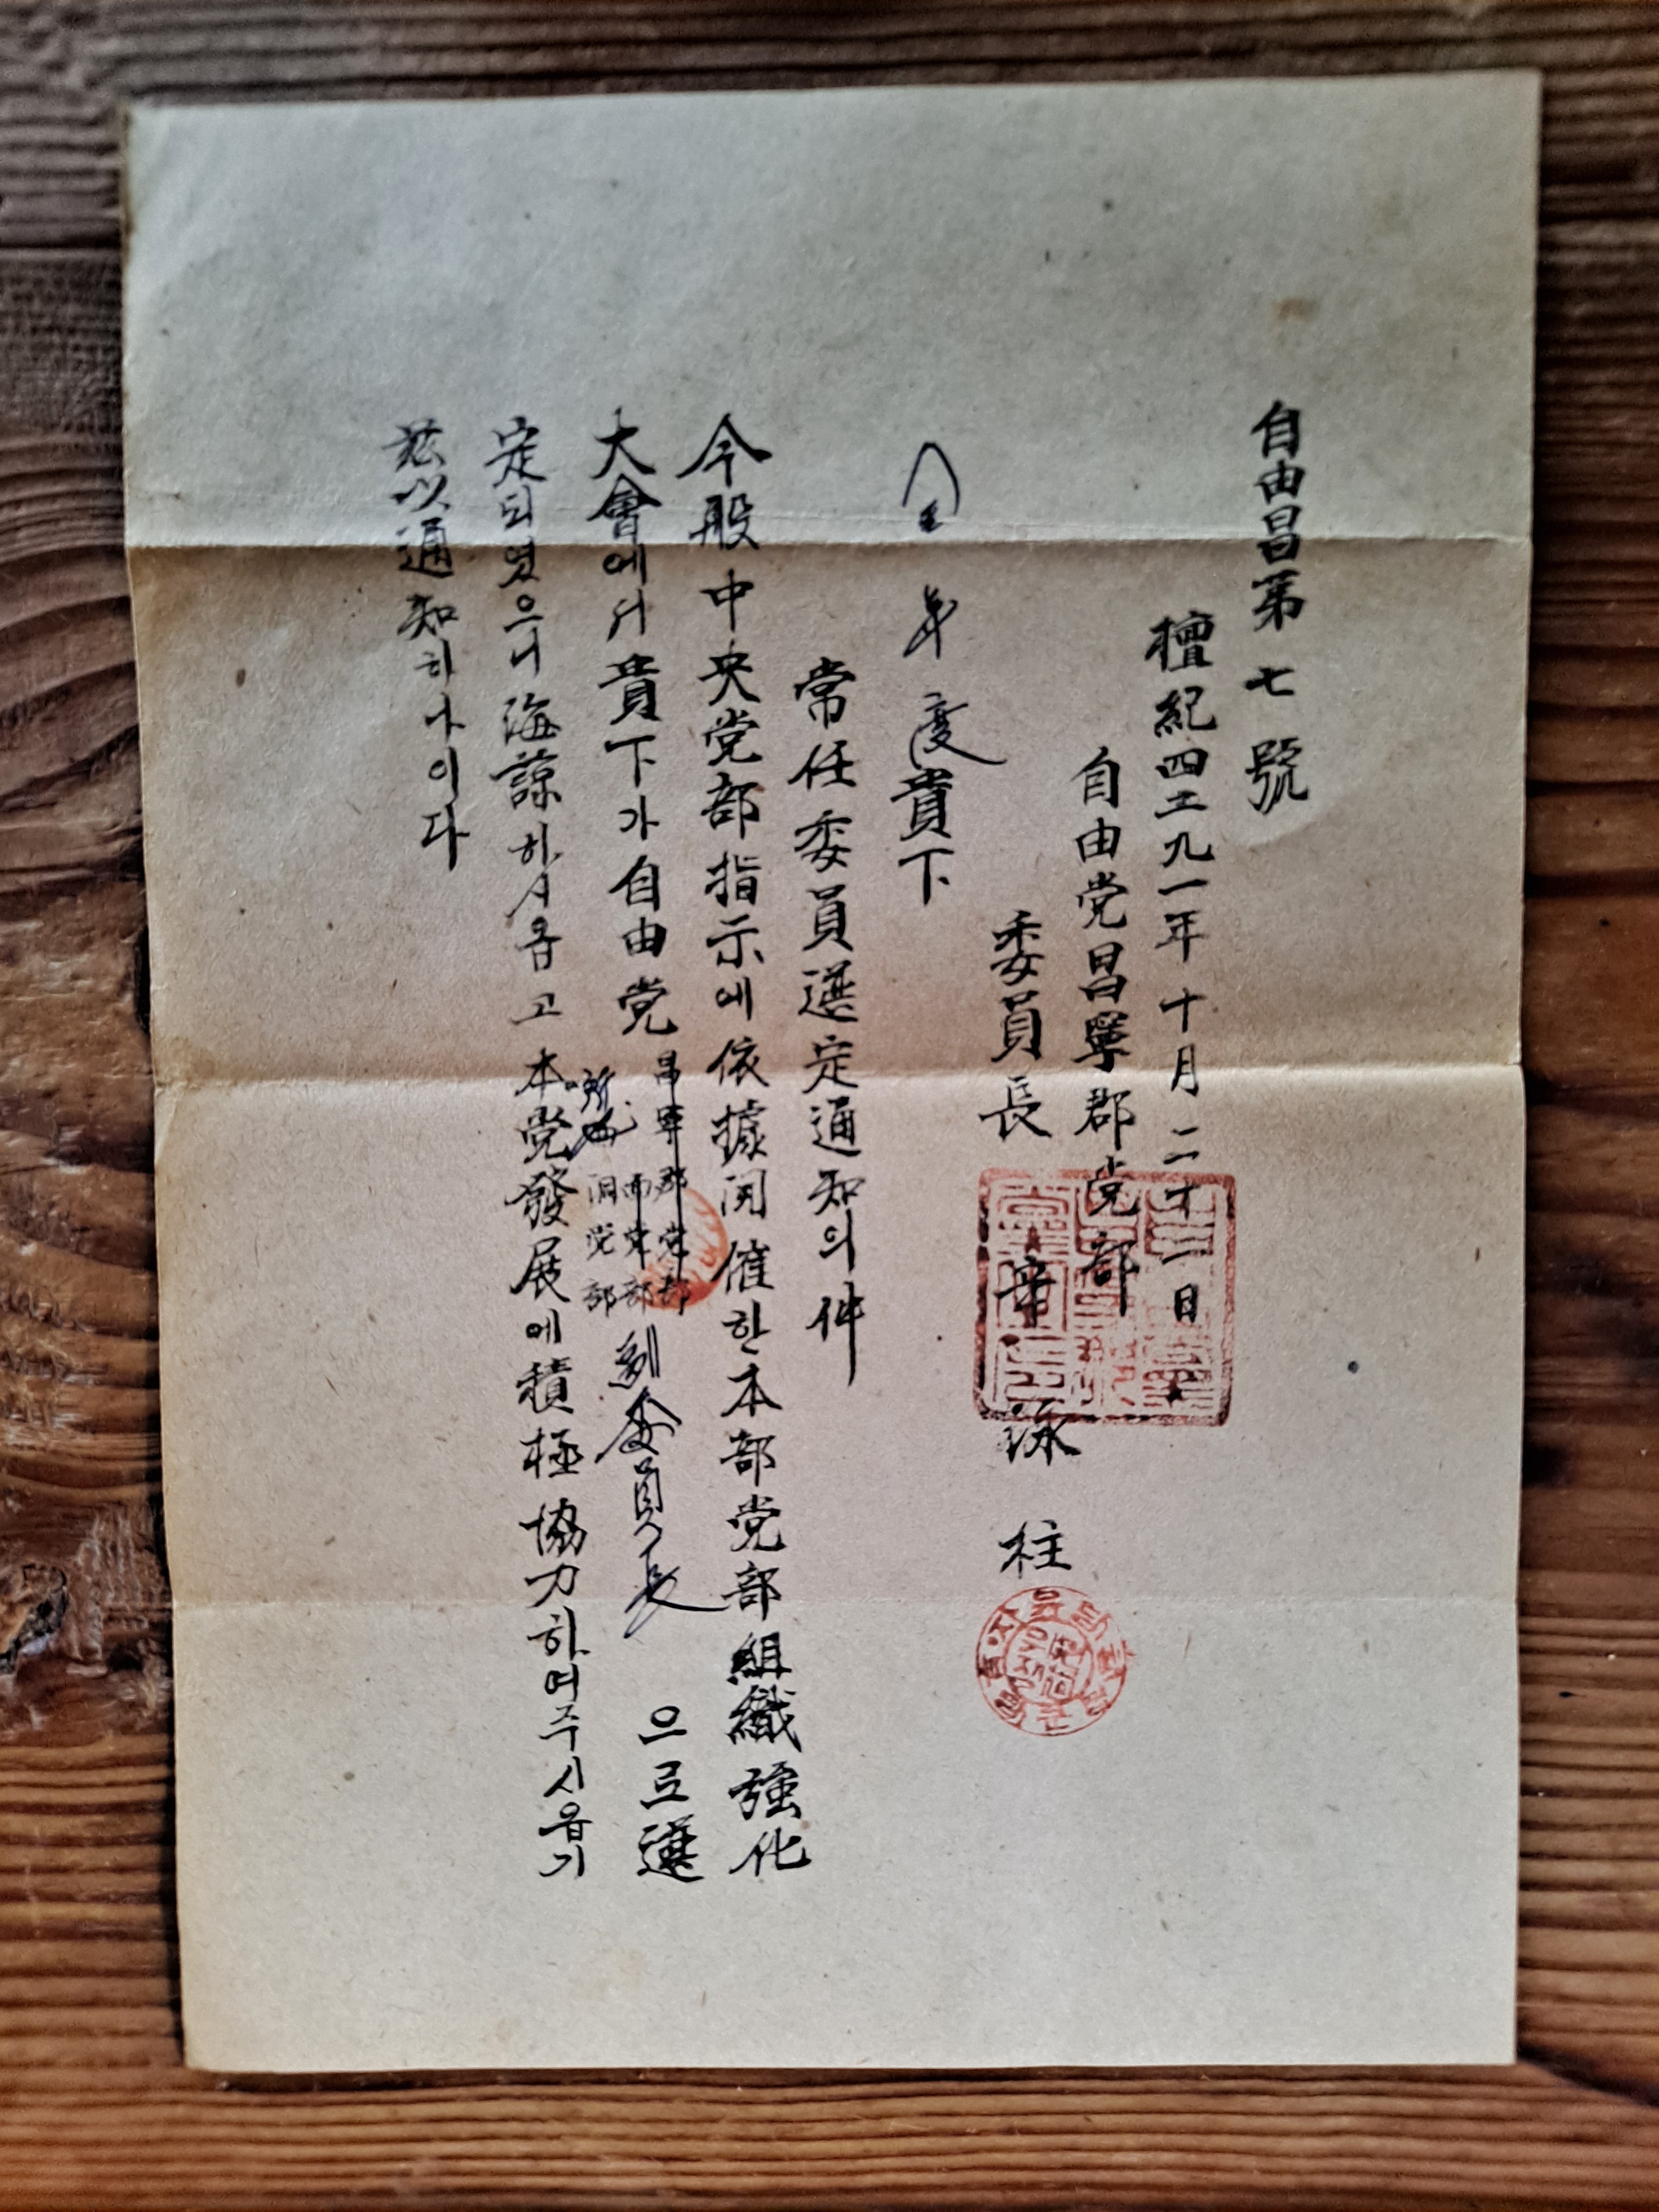 自由昌第七號
檀紀四二九一年十月二十一日
自由党昌寧郡党部
委員長 辛泳柱
金 度貴下
常任委員選定通知의件
今般中央党部指示에依據開催한本部党部組織強化
大會에서貴下가自由党
昌寧郡党部
面党部
洞党部
副委員長
으로選
定되엿으니海諒하시옵고本党發展에積極協力하여주시옵기
玆以通知하나이다